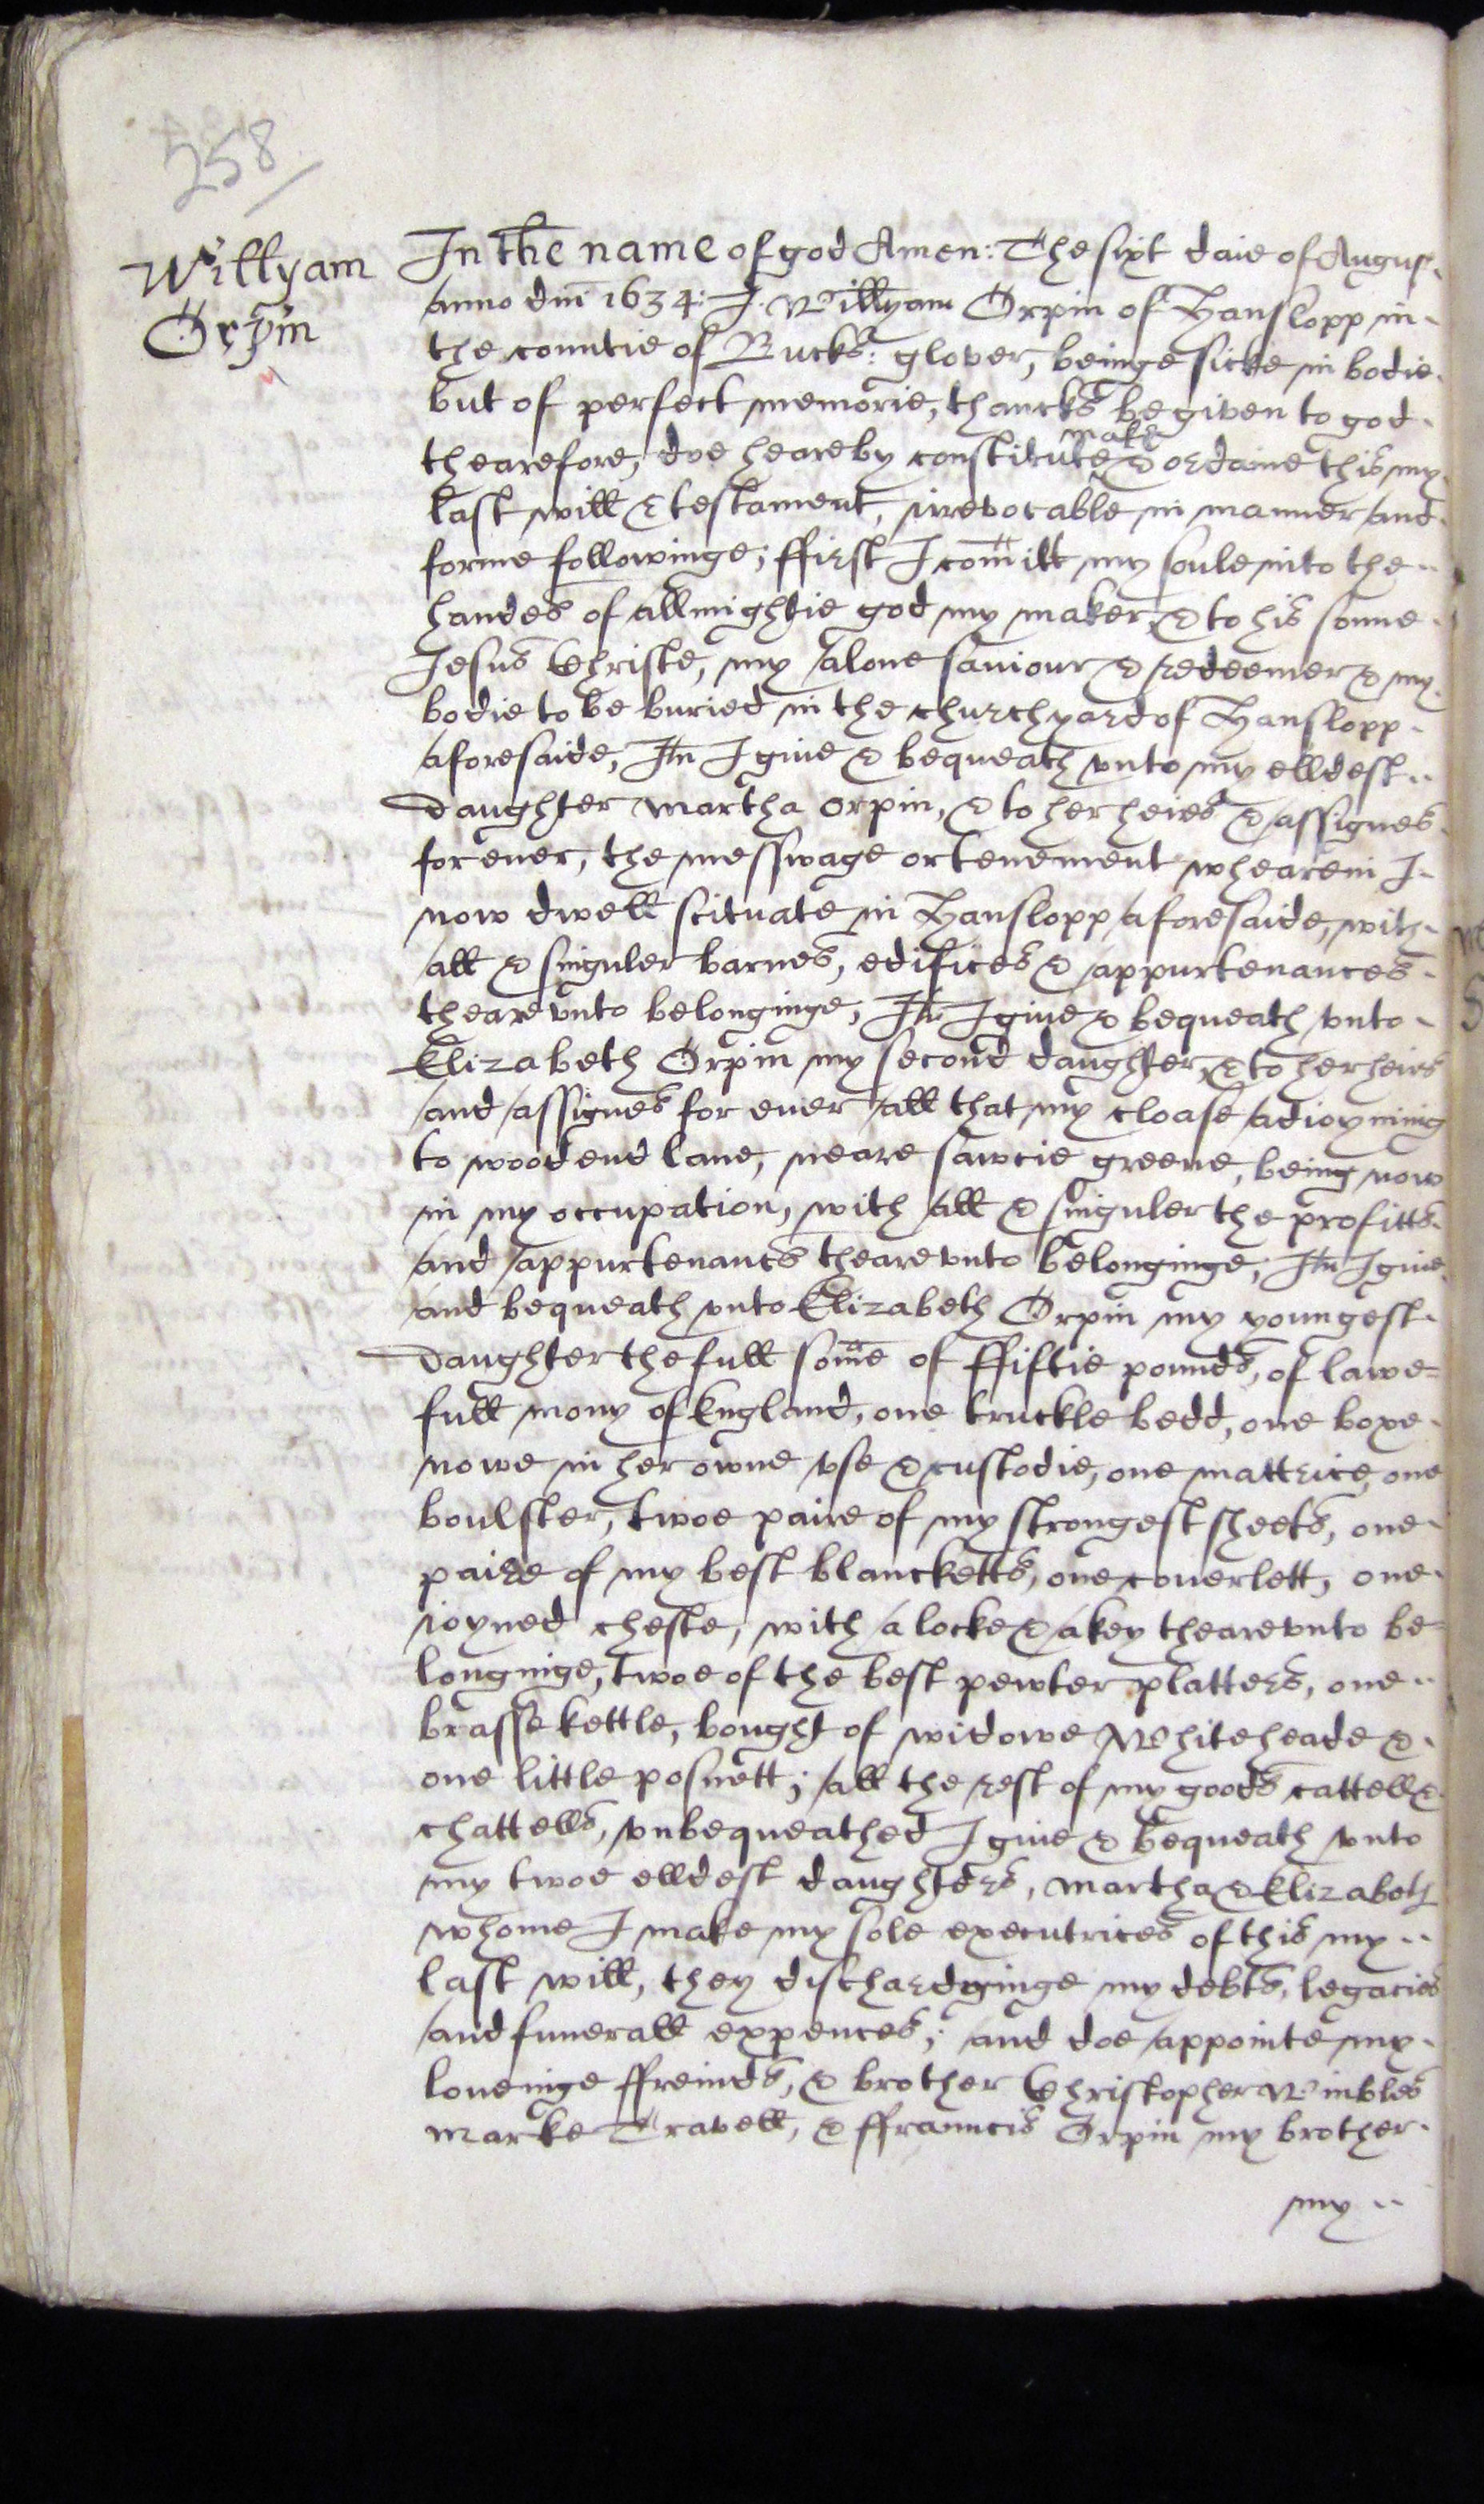 258
Willyam
Orpin
In the name of god Amen: The sixt daie of August
anno dni 1634: I Willyam Orpin of Hanslopp in
the countie of Bucks: glover, beinge sicke in bodie
but of perfect memorie, thancks be given to god
thearefore, doe heareby constitute make & ordaine this my
last will & testament, irrevocable in manner and
forme followinge; ffirst I comitt my soule into the
handes of allmightie god my maker, & to his sonne
Jesus Christe, my alone saviour & redeemer & my
bodie to be buried in the churchyard of Hanslopp
aforesaide, Itm I give & bequeath vnto my elldest
daughter Martha Orpin, & to her heires & assignes
for ever, the messwage or tenement whearein I
now dwell scituate in Hanslopp aforesaide, with
all & singuler barnes, edifices & appurtenances
theare vnto belonginge, Itm I give & bequeath vnto
Elizabeth Orpin my second daughter, & to her heirs
and assignes for ever all that my cloase adioyning
to woodend lane, neare sawcie greene, being now
in my occupation, with all & singuler the profitts
and appurtenancs theare vnto belonginge; Itm I give
and bequeath vnto Elizabeth Orpin my youngest
daughter the full some of ffiftie pounds, of lawe=
full mony of England, one truckle bedd, one boxe
nowe in her owne vse & custodie, one mattrice, one
boulster, twoe paire of my strongest sheets, one
paire of my best blancketts, one coverlett, one
ioyned cheste, with a locke & a key theare vnto be=
longinge, twoe of the best pewter platters, one
brasse kettle, bought of widowe Whiteheade &
one little posnett; all the rest of my goods cattell &
chattells, vnbequeathed I give & bequeath vnto
my twoe elldest daughters, Martha & Elizabeth
whome I make my sole executrices of this my
last will, they dischardginge my debts, legacies
and funerall expences; and doe appointe my
loveinge ffreinds, & brother Christopher Wimbles
Marke Travell, & ffrauncis Orpin my brother
my